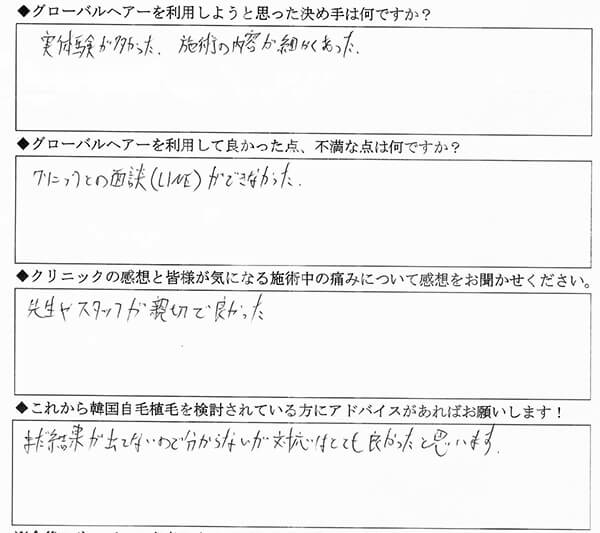 ◆グローバルヘアーを利用しようと思った決め手は何ですか？
実体験が多かった、施術の内容が細かくあった、
◆グローバルヘアーを利用して良かった点、不満な点は何ですか？
クリニックとの面談(LINE)ができなかった.
◆クリニックの感想と皆様が気になる施術中の痛みについて感想をお聞かせください。
先生やスタッフが親切で良かった
◆これから韓国自毛植毛を検討されている方にアドバイスがあればお願いします！
まだ結果が出てないので分からないが対応はとても良かったと思います.